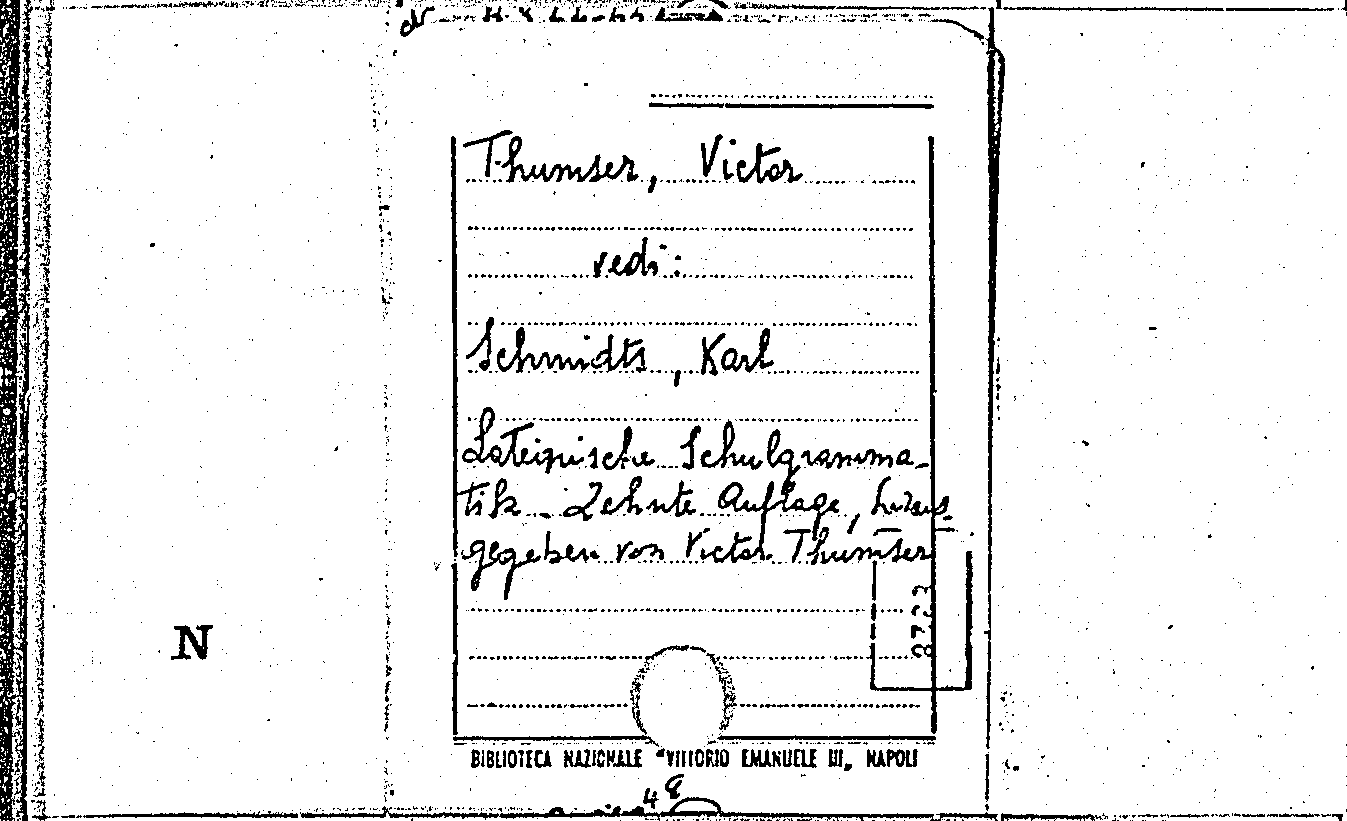 Thumser, Victor
vedi:
Schmidts, Karl
Lateinische Schulgramma-
tik - Zehnte Auflage, heraus-
gegeben von Victor Thumser
8723
N
BIBLIOTECA NAZIONALE "VITTORIO EMANUELE III„ NAPOLI
48